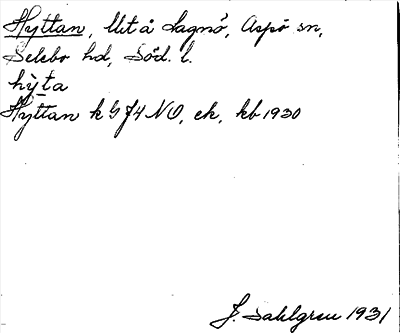 Hyttan, Ut å Lagnö, Aspö sn,
Selebo hd, Söd. l.
hỳta
Hyttan k G J4 NO, ek, kb 1930
J. Sahlgren 1931